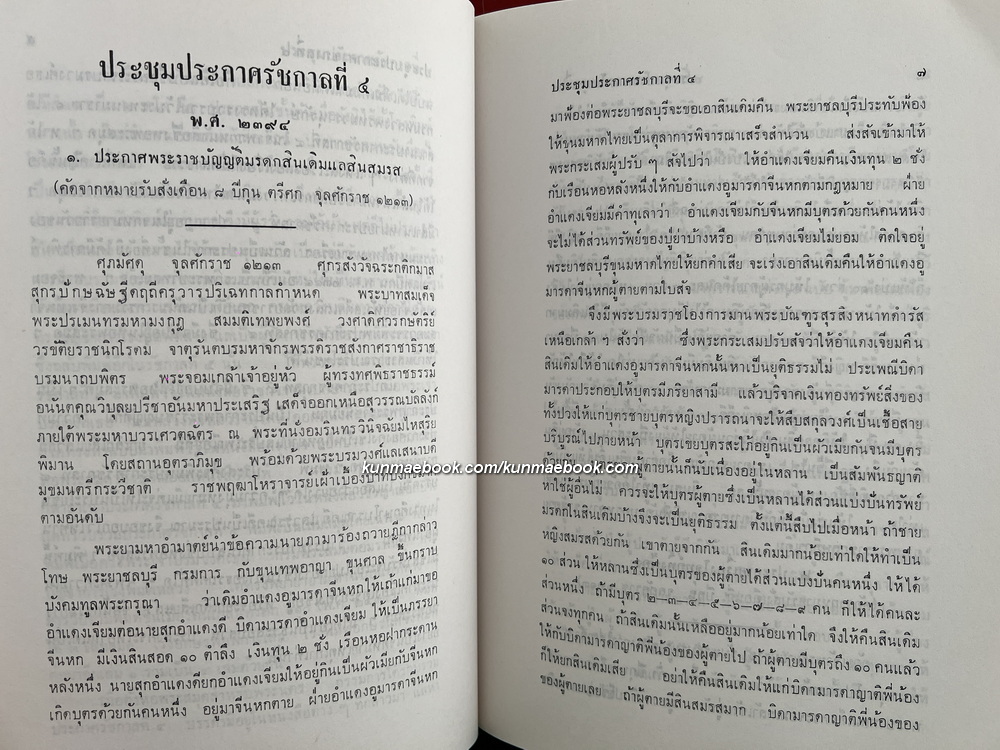 ประชุมประกาศรัชกาลที่ ๔
พ.ศ. ๒๓๙๔
๑. ประกาศพระราชบัญญัติมรดกสินเดิมแลสินสมรส
(คัดจากหมายรับสั่งเดือน ๘ ปีกุน ตรีศก จุลศักราช ๑๒๑๓)
ศุภมัศดุ จุลศักราช ๑๒๑๓ ศุกรสังวัจฉระกติกมาส
สุกรปักษฉัษฐีดฤถีครุวารปริเฉทกาลกำหนด พระบาทสมเด็จ
พระปรเมนทรมหามงกุฎ สมมติเทพยพงศ์ วงศาดิศวรกษัตริย์
วรขัติยราชนิกโรดม จาตุรันตบรมมหาจักรพรรดิราชสังกาศราชาธิราช
บรมนาถบพิตร พระจอมเกล้าเจ้าอยู่หัว ผู้ทรงทศพิธราชธรรม์
อนันตคุณวิบุลยปรีชาอันมหาประเสริฐ เสด็จออกเหนือสุวรรณบัลลังก์
ภายใต้พระมหาบวรเศวตฉัตร ณ พระที่นั่งอมรินทรวินิจฉัยมไหสุริย
พิมาน โดยสถานอุตราภิมุข พร้อมด้วยพระบรมวงศ์แลเสนาบดี
มุขมนตรีกระวีชาติ ราชพฤฒาโหราจารย์เฝ้าเบื้องบาทบงกช
ตามอันดับ
พระยามหาอำมาตย์นำข้อความนายภามาร้องถวายฎีกากล่าว
โทษ พระยาชลบุรี กรมการ กับขุนเทพอาญา ขุนศาล ขึ้นกราบ
บังคมทูลพระกรุณา ว่าเดิมอำแดงอูมารดาจีนหกให้เถ้าแก่มาขอ
อำแดงเจียมต่อนายสุกอำแดงดี บิดามารดาอำแดงเจียม ให้เป็นภรรยา
จีนหก มีเงินสินสอด ๑๐ ตำลึง เงินทุน ๒ ชั่ง เรือนหอฝากระดาน
หลังหนึ่ง นายสุกอำแดงดียกอำแดงเจียมให้อยู่กินเป็นผัวเมียกับจีนหก
เกิดบุตรด้วยกันคนหนึ่ง อยู่มาจีนหกตาย ฝ่ายอำแดงอูมารดาจีนหก
ประชุมประกาศรัชกาลที่ ๔ ๗
มาฟ้องต่อพระยาชลบุรีจะขอเอาสินเดิมคืน พระยาชลบุรีประทับฟ้อง
ให้ขุนมหาดไทยเป็นตุลาการพิจารณาเสร็จสำนวน ส่งสัจเข้ามาให้
พระกระเสมผู้ปรับ ๆ สัจไปว่า ให้อำแดงเจียมคืนเงินทุน ๒ ชั่ง
กับเรือนหอหลังหนึ่งให้กับอำแดงอูมารดาจีนหกตามกฎหมาย ฝ่าย
อำแดงเจียมมีคำทุเลาว่า อำแดงเจียมกับจีนหกมีบุตรด้วยกันคนหนึ่ง
จะไม่ได้ส่วนทรัพย์ของปู่ย่าบ้างหรือ อำแดงเจียมไม่ยอม ติดใจอยู่
พระยาชลบุรีขุนมหาดไทยให้ยกคำเสีย จะเร่งเอาสินเดิมคืนให้อำแดงอู
มารดาจีนหกผู้ตายตามใบสัจ
จึงมีพระบรมราชโองการมานพระบัณฑูรสุรสิงหนาทดำรัส
เหนือเกล้า ๆ สั่งว่า ซึ่งพระกระเสมปรับสัจว่าให้อำแดงเจียมคืน
สินเดิมให้อำแดงอูมารดาจีนหกนั้นหาเป็นยุติธรรมไม่ ประเพณีบิดา
มารดาประกอบให้บุตรมีภริยาสามี แล้วบริจาคเงินทองทรัพย์สิ่งของ
ทั้งปวงให้แก่บุตรชายบุตรหญิงปรารถนาจะให้สืบสกุลวงศ์เป็นเชื้อสาย
บริบูรณ์ไปภายหน้า บุตรเขยบุตรสะใภ้อยู่กินเป็นผัวเมียกันจนมีบุตร
ด้วยกัน ผู้ตายนั้นก็นับเนื่องอยู่ในหลาน เป็นสัมพันธญาติ
หาใช่ผู้อื่นไม่ ควรจะให้บุตรผู้ตายซึ่งเป็นหลานได้ส่วนแบ่งปันทรัพย์
มรดกในสินเดิมบ้างจึงจะเป็นยุติธรรม ตั้งแต่นี้สืบไปเมื่อหน้า ถ้าชาย
หญิงสมรสด้วยกัน เขาตายจากกัน สินเดิมมากน้อยเท่าใดให้ทำเป็น
๑๐ ส่วน ให้หลานซึ่งเป็นบุตรของผู้ตายได้ส่วนแบ่งปันคนหนึ่ง ให้ได้
ส่วนหนึ่ง ถ้ามีบุตร ๒—๓—๔—๕—๖—๗—๘—๙ คน ก็ให้ได้คนละ
ส่วนจงทุกคน ถ้าสินเดิมนั้นเหลืออยู่มากน้อยเท่าใด จึงให้คืนสินเดิม
ให้กับบิดามารดาญาติพี่น้องของผู้ตายไป ถ้าผู้ตายมีบุตรถึง ๑๐ คนแล้ว
ก็ให้ยกสินเดิมเสีย อย่าให้คืนสินเดิมให้แก่บิดามารดาญาติพี่น้อง
ของผู้ตายเลย ถ้าผู้ตายมีสินสมรสมาก บิดามารดาญาติพี่น้องของ
kunmaebook.com/kunmaebook.com